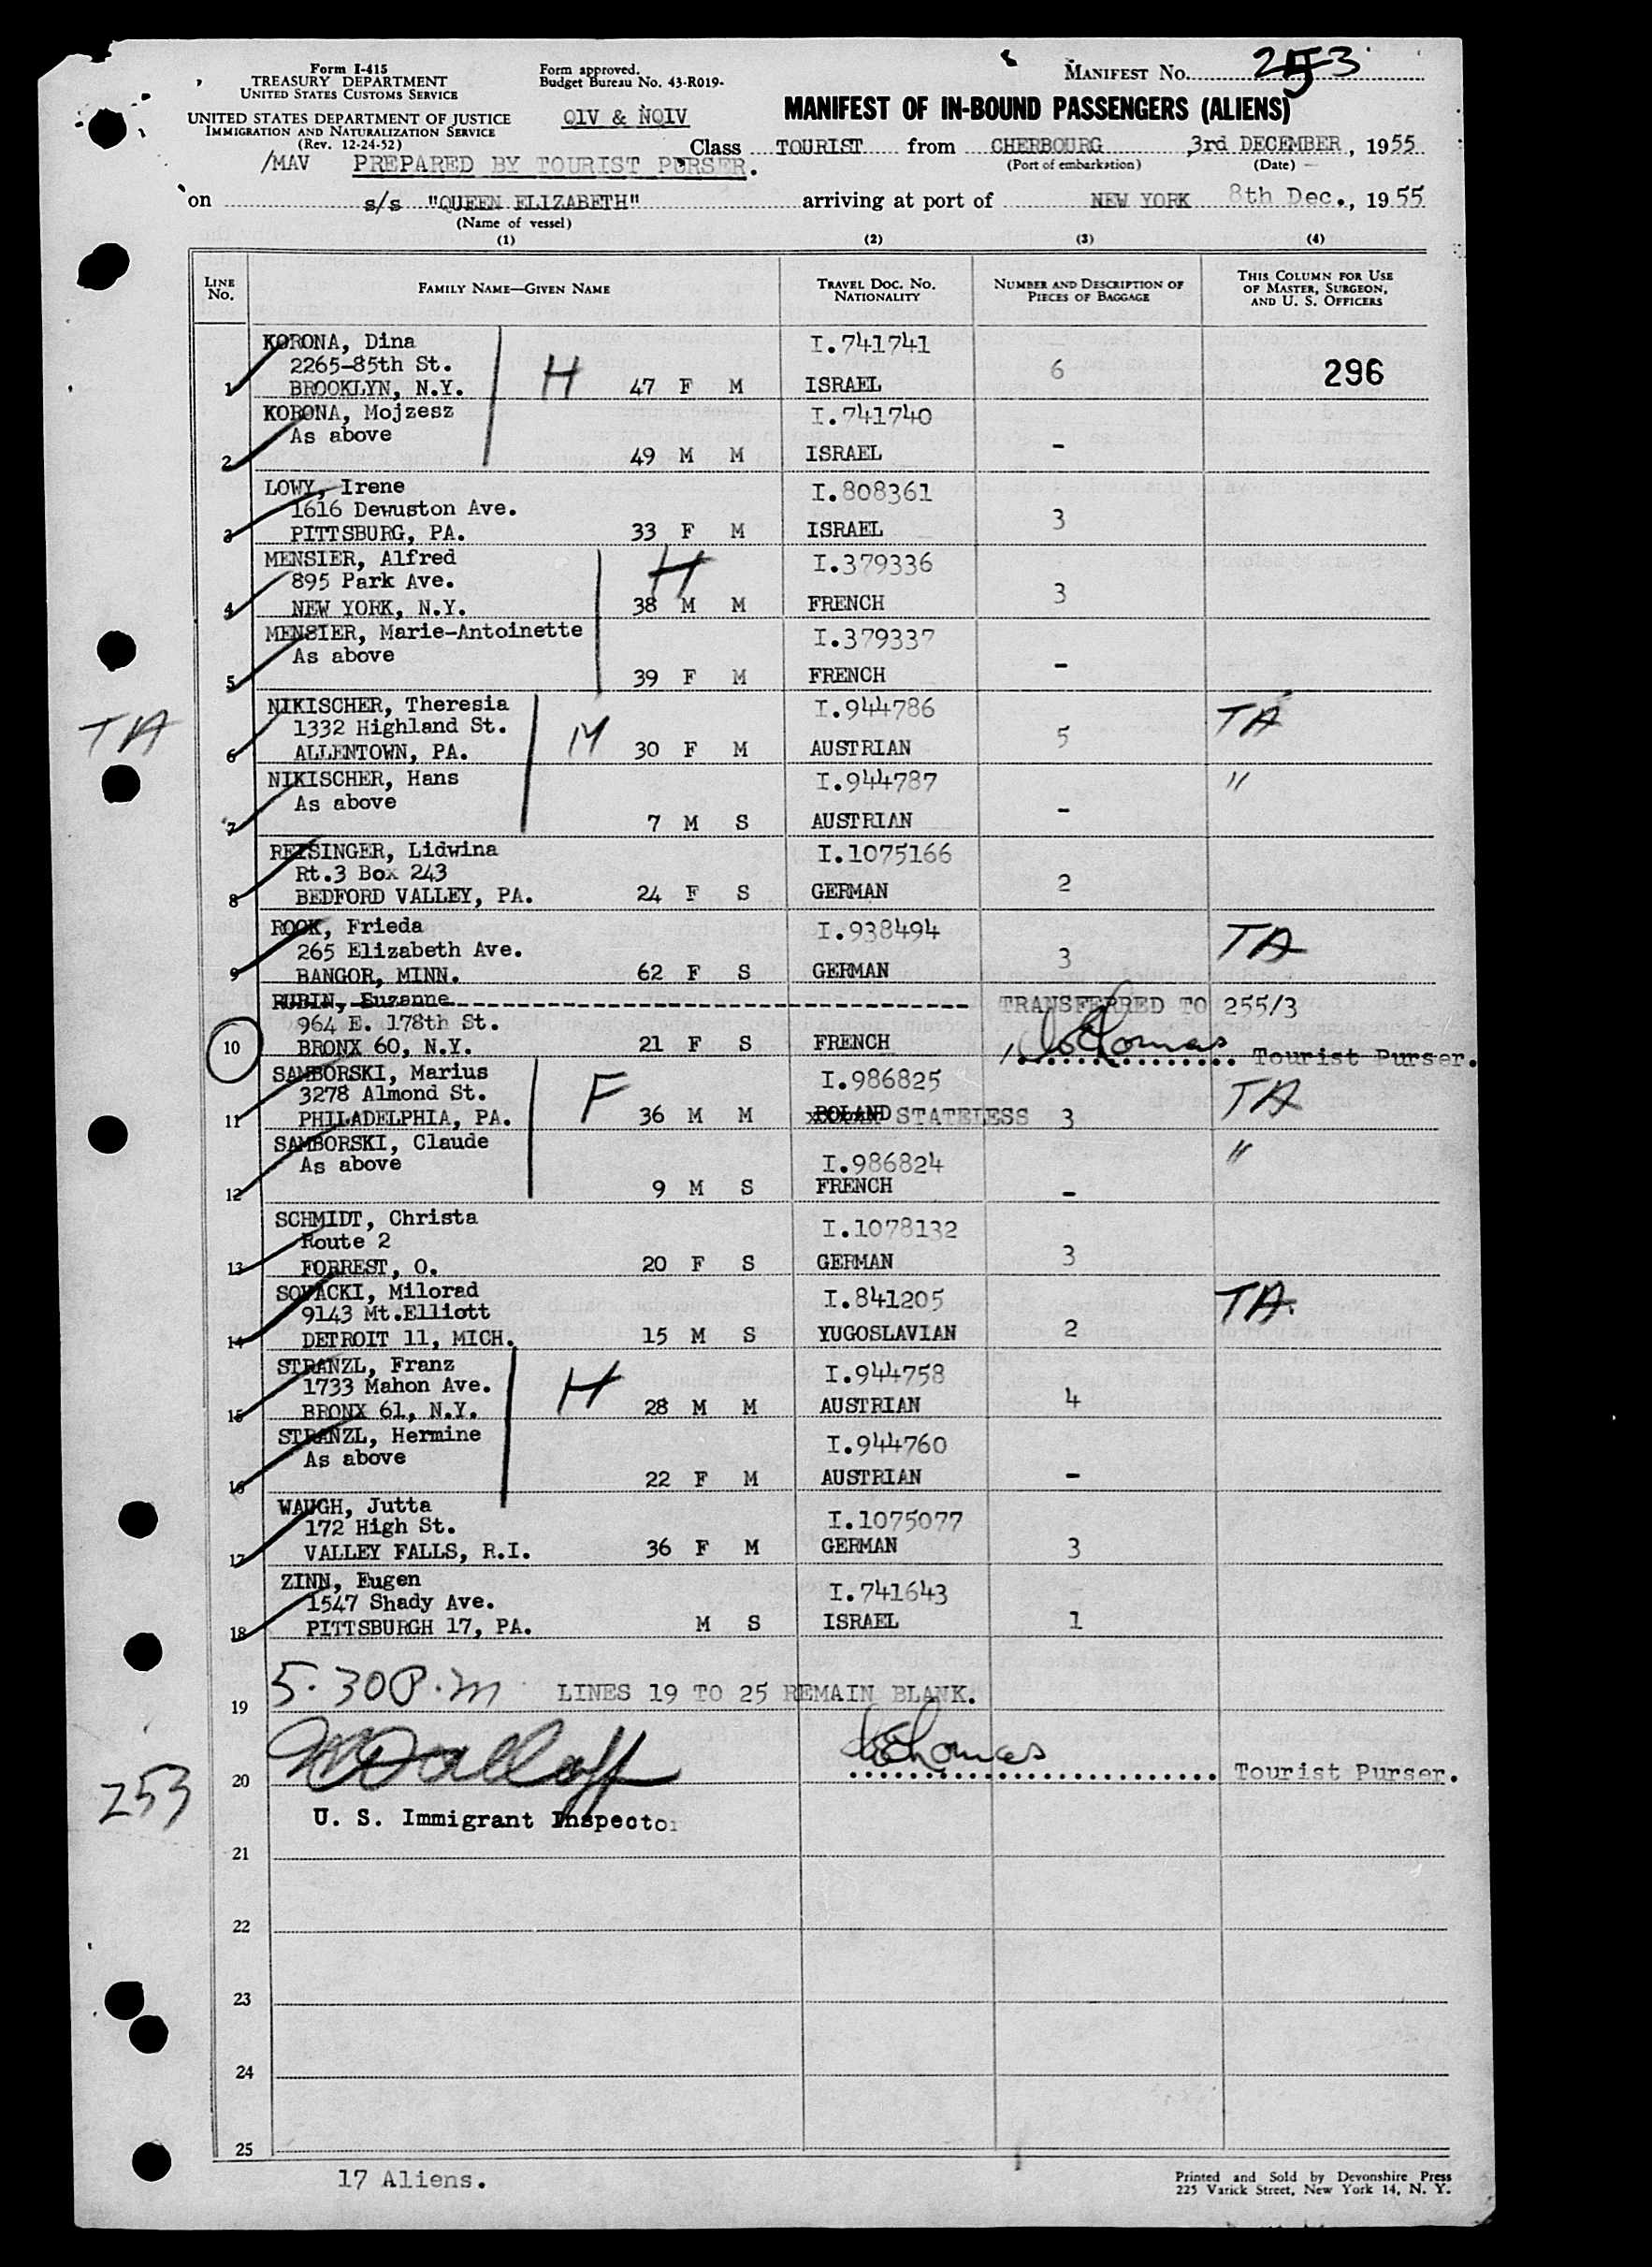 Form I-415
TREASURY DEPARTMENT
UNITED STATES CUSTOMS SERVICE
UNITED STATES DEPARTMENT OF JUSTICE
IMMIGRATION AND NATURALIZATION SERVICE
(Rev. 12-24-52)
Form approved.
Budget Bureau No. 43-R019-
QIV & NQIV
MANIFEST No. 253
MANIFEST OF IN-BOUND PASSENGERS (ALIENS)
Class TOURIST from CHERBOURG 3rd DECEMBER, 1955
(Port of embarkation) (Date)
/MAV PREPARED BY TOURIST PURSER.
on s/s "QUEEN ELIZABETH" arriving at port of NEW YORK 8th Dec., 1955
(Name of vessel)
(1) (2) (3) (4)
LINE No. FAMILY NAME—GIVEN NAME TRAVEL DOC. No. NATIONALITY NUMBER AND DESCRIPTION OF PIECES OF BAGGAGE THIS COLUMN FOR USE OF MASTER, SURGEON, AND U. S. OFFICERS
KORONA, Dina I.741741
2265-85th St. H 6 296
1 BROOKLYN, N.Y. 47 F M ISRAEL
KORONA, Mojzesz I.741740
As above -
2 49 M M ISRAEL
LOWY, Irene I.808361
1616 Dewuston Ave. 3
3 PITTSBURG, PA. 33 F M ISRAEL
MENSIER, Alfred H I.379336
895 Park Ave. 3
4 NEW YORK, N.Y. 38 M M FRENCH
MENSIER, Marie-Antoinette I.379337
As above -
5 39 F M FRENCH
NIKISCHER, Theresia I.944786 TA
TA 1332 Highland St. M 5
6 ALLENTOWN, PA. 30 F M AUSTRIAN
NIKISCHER, Hans I.944787 "
As above -
7 7 M S AUSTRIAN
REISINGER, Lidwina I.1075166
Rt.3 Box 243 2
8 BEDFORD VALLEY, PA. 24 F S GERMAN
ROOK, Frieda I.938494 TA
265 Elizabeth Ave. 3
9 BANGOR, MINN. 62 F S GERMAN
RUBIN, Suzanne TRANSFERRED TO 255/3
964 E. 178th St.
10 BRONX 60, N.Y. 21 F S FRENCH Thomas Tourist Purser.
SAMBORSKI, Marius I.986825 TA
3278 Almond St. F
11 PHILADELPHIA, PA. 36 M M POLAND STATELESS 3
SAMBORSKI, Claude "
As above I.986824
12 9 M S FRENCH -
SCHMIDT, Christa I.1078132
Route 2 3
13 FORREST, O. 20 F S GERMAN
SOVACKI, Milorad I.841205 TA.
9143 Mt.Elliott 2
14 DETROIT 11, MICH. 15 M S YUGOSLAVIAN
STRANZL, Franz I.944758
1733 Mahon Ave. H 4
15 BRONX 61, N.Y. 28 M M AUSTRIAN
STRANZL, Hermine I.944760
As above -
16 22 F M AUSTRIAN
WAUGH, Jutta I.1075077
172 High St.
17 VALLEY FALLS, R.I. 36 F M GERMAN 3
ZINN, Eugen I.741643
1547 Shady Ave.
18 PITTSBURGH 17, PA. M S ISRAEL 1
19 5.30 P.m LINES 19 TO 25 REMAIN BLANK.
253 20 Thomas Tourist Purser.
U. S. Immigrant Inspector
21
22
23
24
25
17 Aliens.
Printed and Sold by Devonshire Press
225 Varick Street, New York 14, N. Y.